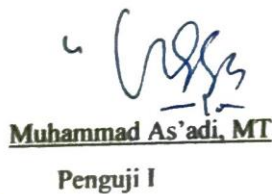 Muhammad As'adi, MT
Penguji I